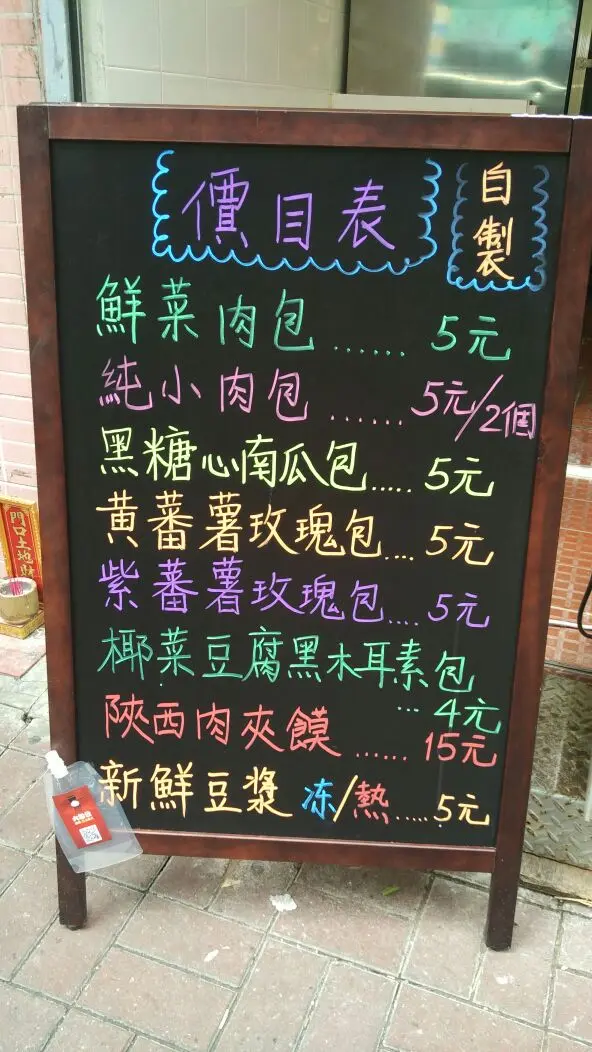 價目表
自製
鮮菜肉包......5元
純小肉包......5元/2個
黑糖心南瓜包.....5元
黄蕃薯玫瑰包....5元
紫蕃薯玫瑰包....5元
椰菜豆腐黑木耳素包
...4元
陝西肉夾饃......15元
新鮮豆漿 冻/熱.....5元
門口土地財